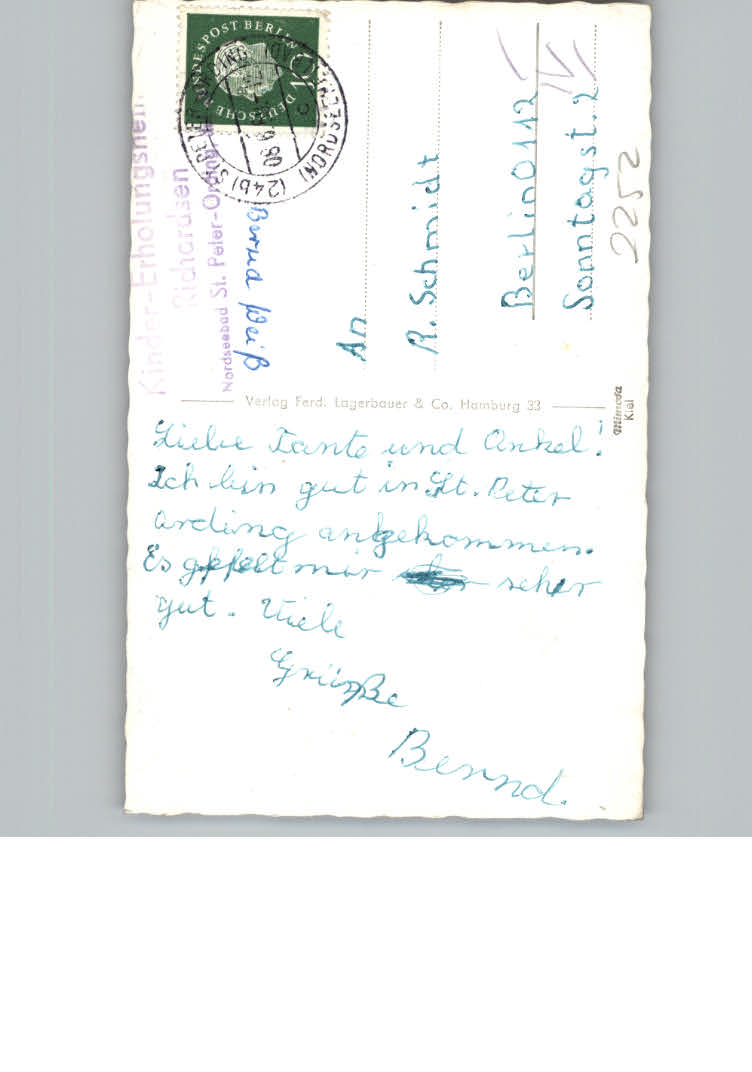 Kinder-Erholungsheim
Richardsen
Nordseebad St. Peter-Ording
Bernd Weiß
DEUTSCHE BUNDESPOST BERLIN
10
(24b) ST. PETER-ORDING (NORDSEEHEILBAD)
An
R. Schmidt
Berlin O 112
Sonntagst. 2
2252
Verlag Ferd. Lagerbauer & Co. Hamburg 33
Mimosa
Kiel
Liebe Tante und Onkel!
Ich bin gut in St. Peter
Ording angekommen.
Es gefelt mir sehr
gut. Viele
Grüße
Bernd.